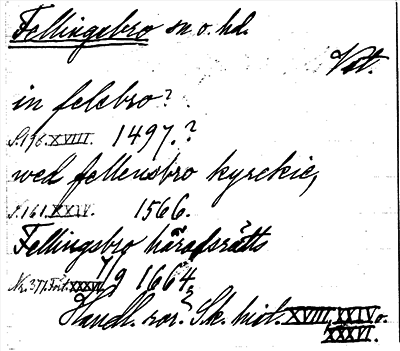 Fellingsbro sn o. hd.
Vst.
in felebro?
s. 196. XVIII. 1497.?
wed fellensbro kyrckie,
s. 161. XXIV. 1566.
Fellingsbro häradsrätts
Nr. 371. XXXVI. 7/9 1664,
Handl. rör. Sk. hist. XVIII, XXIV o.
XXXVI.